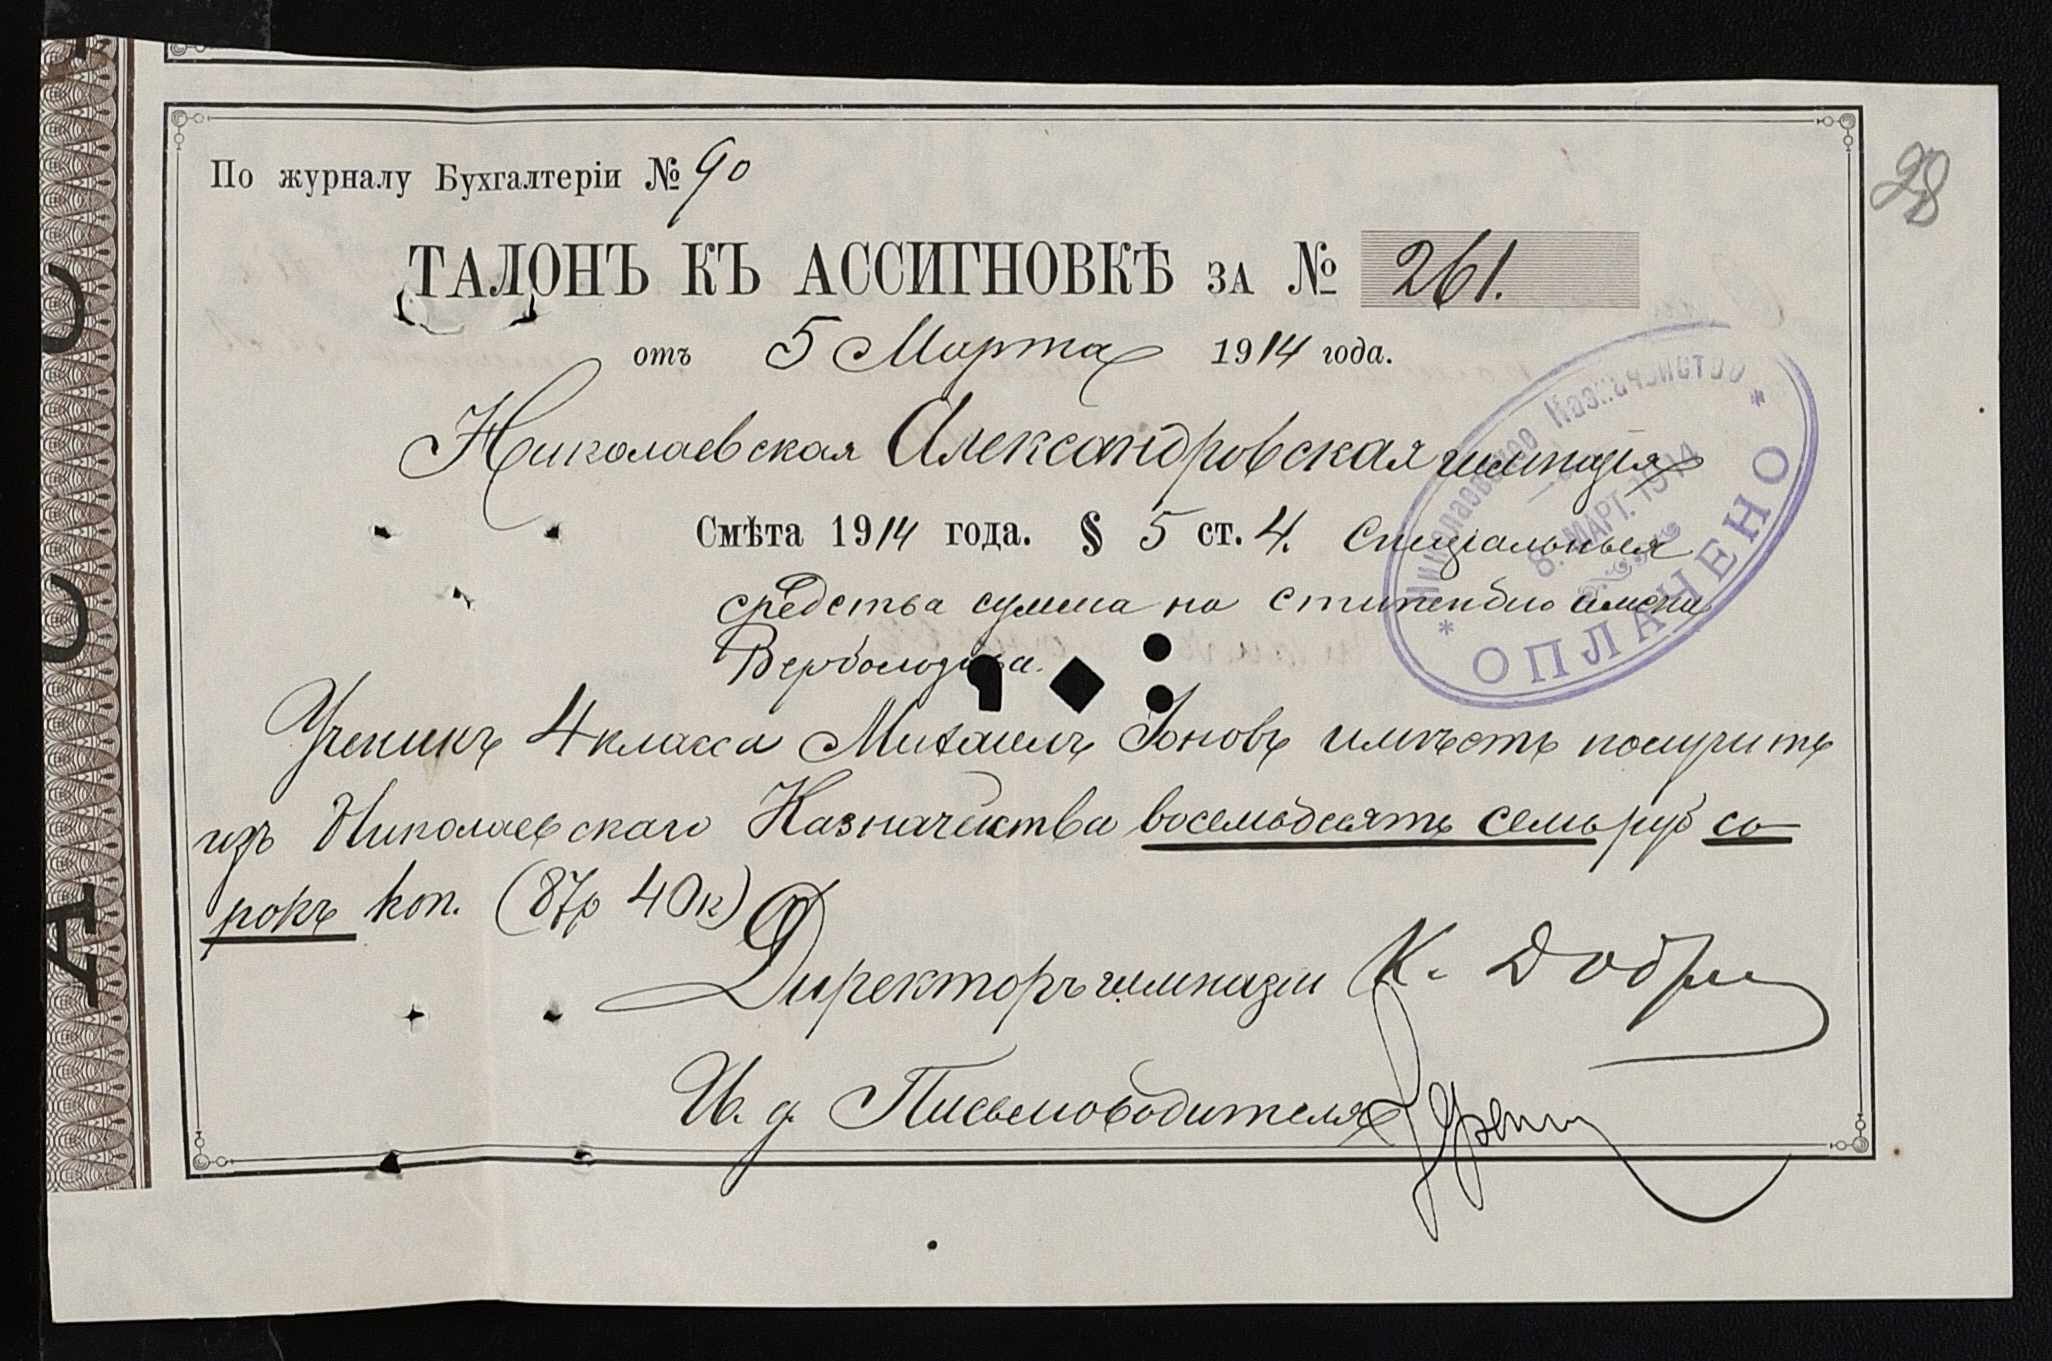 28
По журналу Бухгалтеріи № 90
ТАЛОНЪ КЪ АССИГНОВКѢ ЗА № 261.
отъ 5 Марта 1914 года.
Николаевская Александровская гимназія
Смѣта 1914 года. § 5 ст. 4. Спеціальныя
средства сумма на стипендію имени
Ученикъ 4 класса Михаилъ Іоновъ имѣетъ получить
изъ Николаевскаго Казначейства восемьдесятъ семь руб со
рокъ коп. (87р 40к)
Директоръ гимназіи К.
И. д. Письмоводителя
Николаевское Казначейство
8. МАРТ. 1914
* ОПЛАЧЕНО *